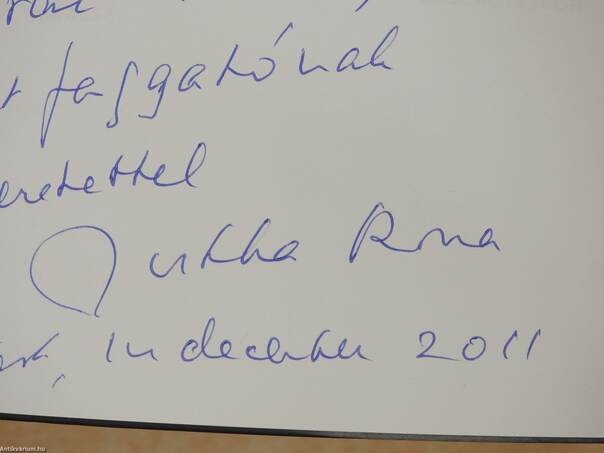 faggatónak
eretettel
Jutka Rona
, 1 n december 2011
Antikvarium.hu